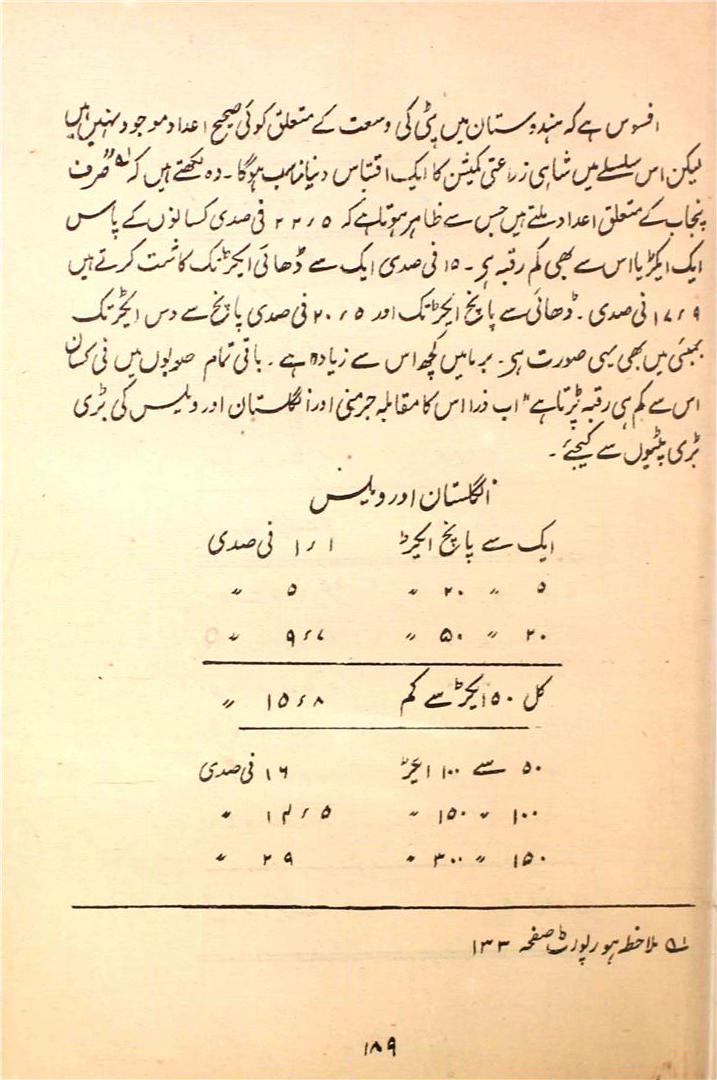 افسوس ہے کہ ہندوستان میں پٹی کی وسعت کے متعلق کوئی صحیح اعداد موجود نہیں ہیں
لیکن اس سلسلے میں شاہی زراعتی کمیشن کا ایک اقتباس دینا مناسب ہوگا۔ وہ لکھتے ہیں کہ ۱؎ "صرف
پنجاب کے متعلق اعداد ملتے ہیں جس سے ظاہر ہوتا ہے کہ ۲۲٫۵ فی صدی کسانوں کے پاس
ایک ایکڑ یا اس سے بھی کم رقبہ ہی۔ ۱۵ فی صدی ایک سے ڈھائی ایکڑ تک کاشت کرتے ہیں
۱۷٫۹ فی صدی۔ ڈھائی سے پانچ ایکڑ تک اور ۲۰٫۵ فی صدی پانچ سے دس ایکڑ تک
بمبئی میں بھی یہی صورت ہی۔ برما میں کچھ اس سے زیادہ ہے۔ باقی تمام صوبوں میں فی کسان
اس سے کم ہی رقبہ پڑتا ہے" اب ذرا اس کا مقابلہ جرمنی اور انگلستان اور ویلس کی بڑی
بڑی پٹیوں سے کیجئے۔
انگلستان اور ویلس
ایک سے پانچ ایکڑ ۱٫۱ فی صدی
۵ 〃 ۲۰ 〃 ۵ 〃
۲۰ 〃 ۵۰ 〃 ۹٫۷ 〃
کل ۵۰ ایکڑ سے کم ۱۵٫۸ 〃
۵۰ سے ۱۰۰ ایکڑ ۱۶ فی صدی
۱۰۰ 〃 ۱۵۰ 〃 ۱۴٫۵ 〃
۱۵۰ 〃 ۳۰۰ 〃 ۲۹ 〃
۱؎ ملاحظہ ہو رپورٹ صفحہ ۱۳۳
۱۸۹